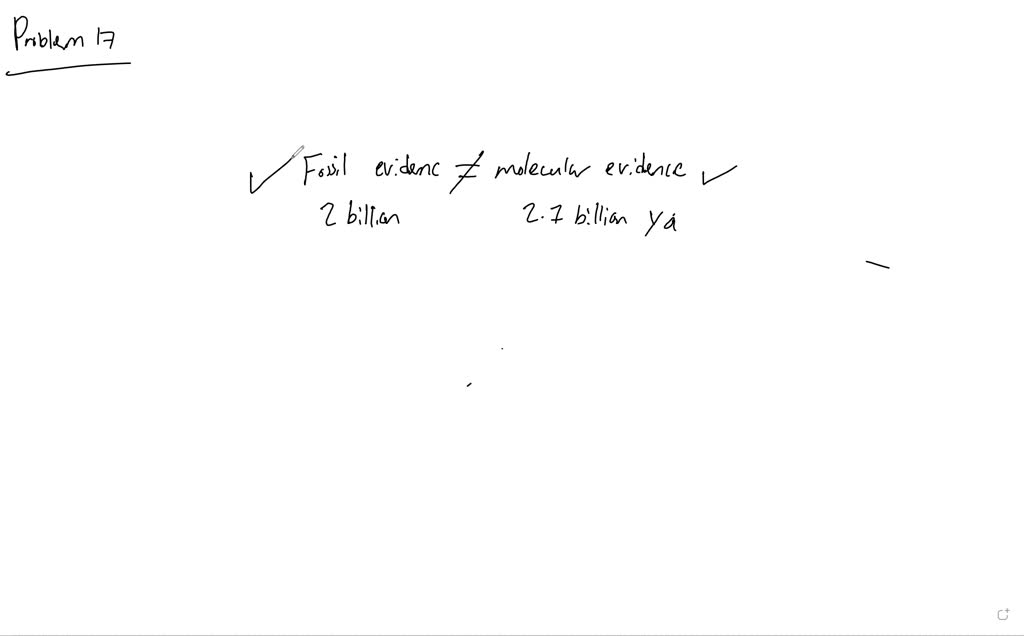 Problem 17
✓ Fossil evidenc ≠ molecular evidence ✓
2 billion 2.7 billion ya